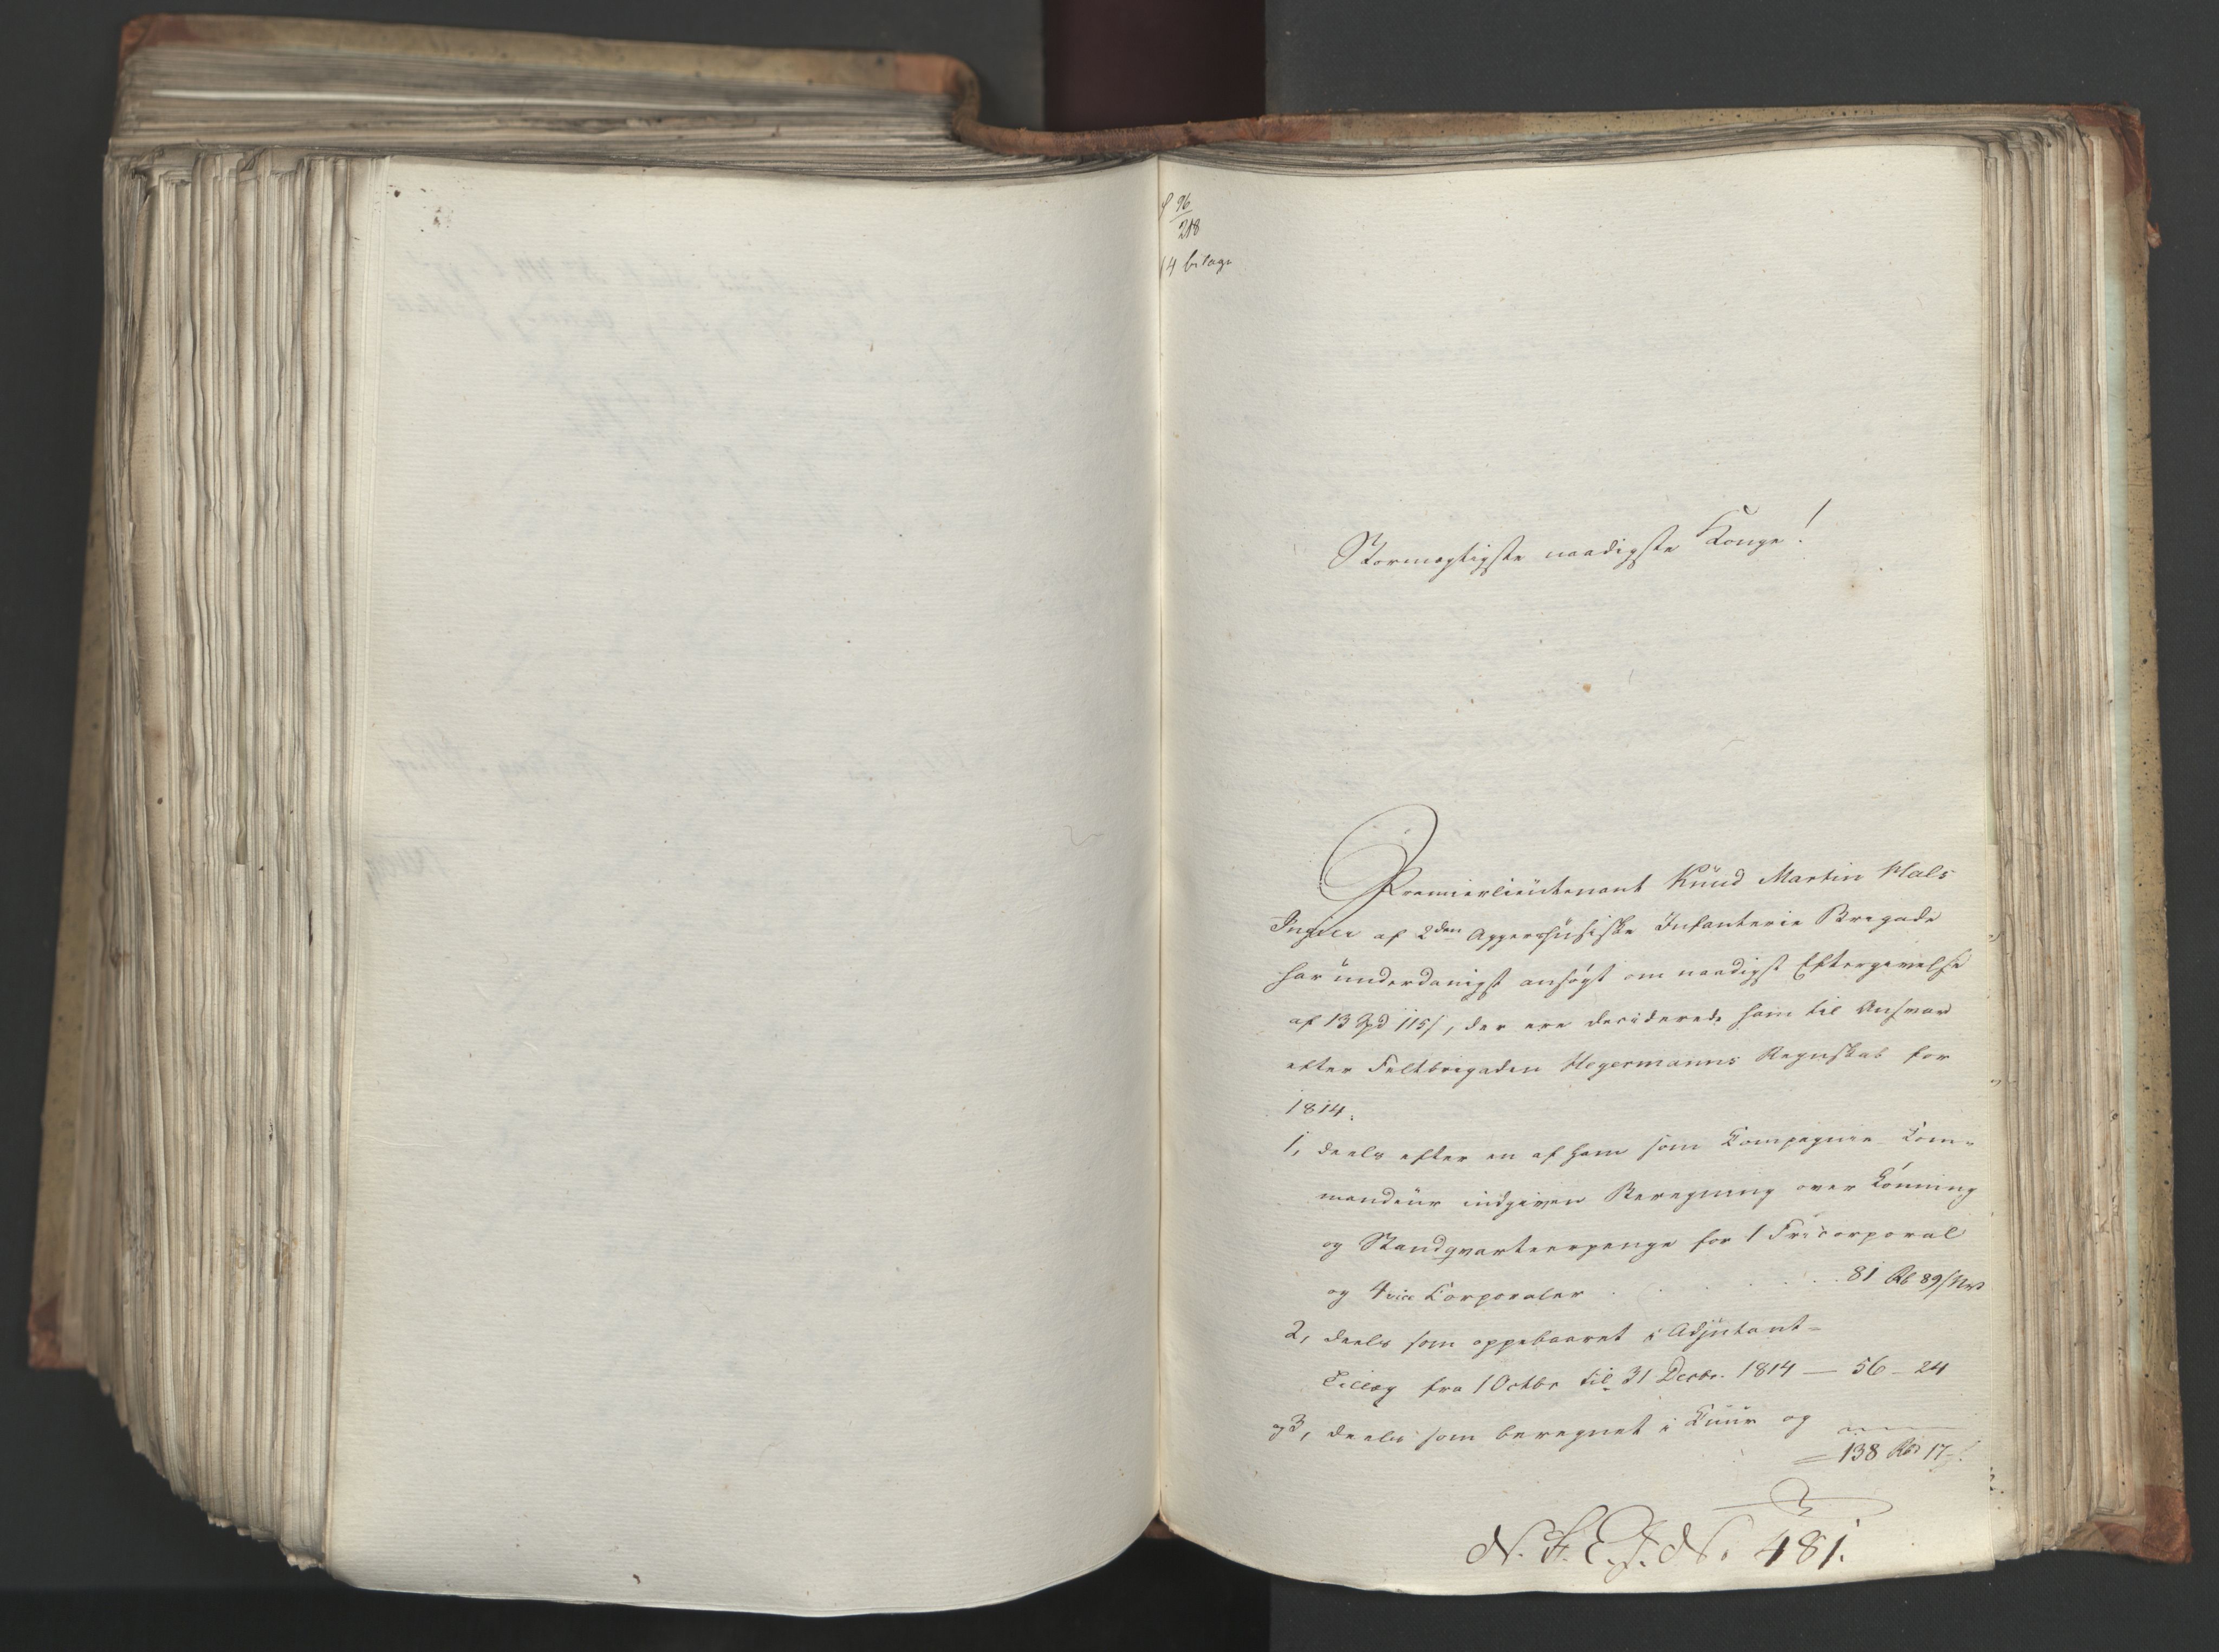 96
218
14 bilage
Stormægtigste naadigste Konge!
Premierlieutenant Knud Martin Hals
af 2den Aggershusiske Infanterie Brigade
har underdanigst ansøgt om naadigst Eftergivelse
af 13 Spd 115 s, der ere deciderede ham til Ansvar
efter Feltbrigaden Hegermanns Regnskab for
1814.
1, deels efter en af ham som Compagnie Com-
mandeur indgiven Beregning over Lønning
og Standqvarteerpenge for 1 Fricorporal
og 4 vice Corporaler . . . . . 81 Rb 89 s NV
2, deels som oppebaaret i Adjutant-
Tillæg fra 1 Octbr til 31 Decbr. 1814 — 56 - 24
og 3, deels som beregnet i Cuur og
= 138 Rbd 17 s.
N. F. E. J. N. 481.